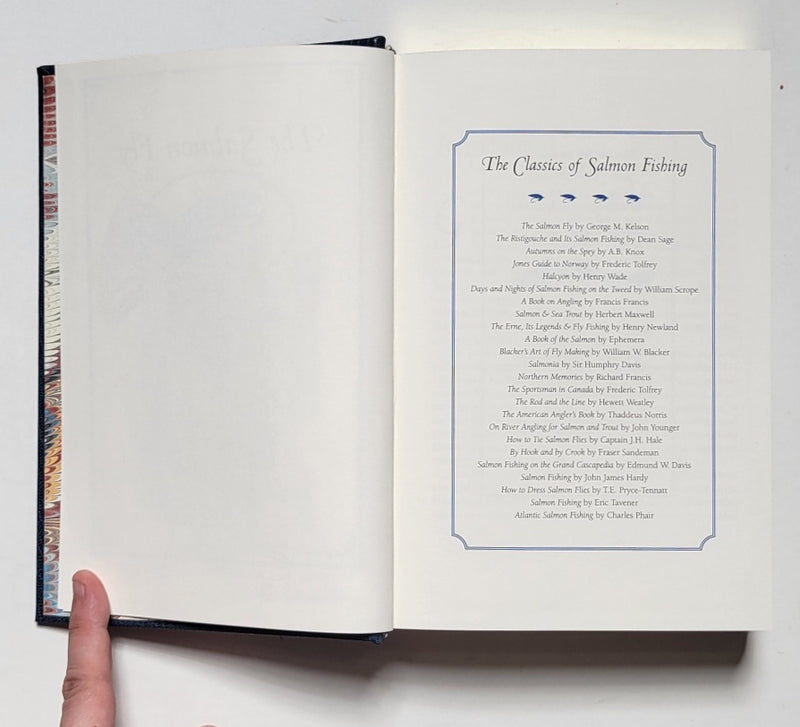 The Salmon Fly
The Classics of Salmon Fishing
The Salmon Fly by George M. Kelson
The Ristigouche and Its Salmon Fishing by Dean Sage
Autumns on the Spey by A.B. Knox
Jones Guide to Norway by Frederic Tolfrey
Halcyon by Henry Wade
Days and Nights of Salmon Fishing on the Tweed by William Scrope
A Book on Angling by Francis Francis
Salmon & Sea Trout by Herbert Maxwell
The Erne, Its Legends & Fly Fishing by Henry Newland
A Book of the Salmon by Ephemera
Blacker's Art of Fly Making by William W. Blacker
Salmonia by Sir Humphry Davis
Northern Memories by Richard Francis
The Sportsman in Canada by Frederic Tolfrey
The Rod and the Line by Hewett Weatley
The American Angler's Book by Thaddeus Norris
On River Angling for Salmon and Trout by John Younger
How to Tie Salmon Flies by Captain J.H. Hale
By Hook and by Crook by Fraser Sandeman
Salmon Fishing on the Grand Cascapedia by Edmund W. Davis
Salmon Fishing by John James Hardy
How to Dress Salmon Flies by T.E. Pryce-Tennatt
Salmon Fishing by Eric Tavener
Atlantic Salmon Fishing by Charles Phair